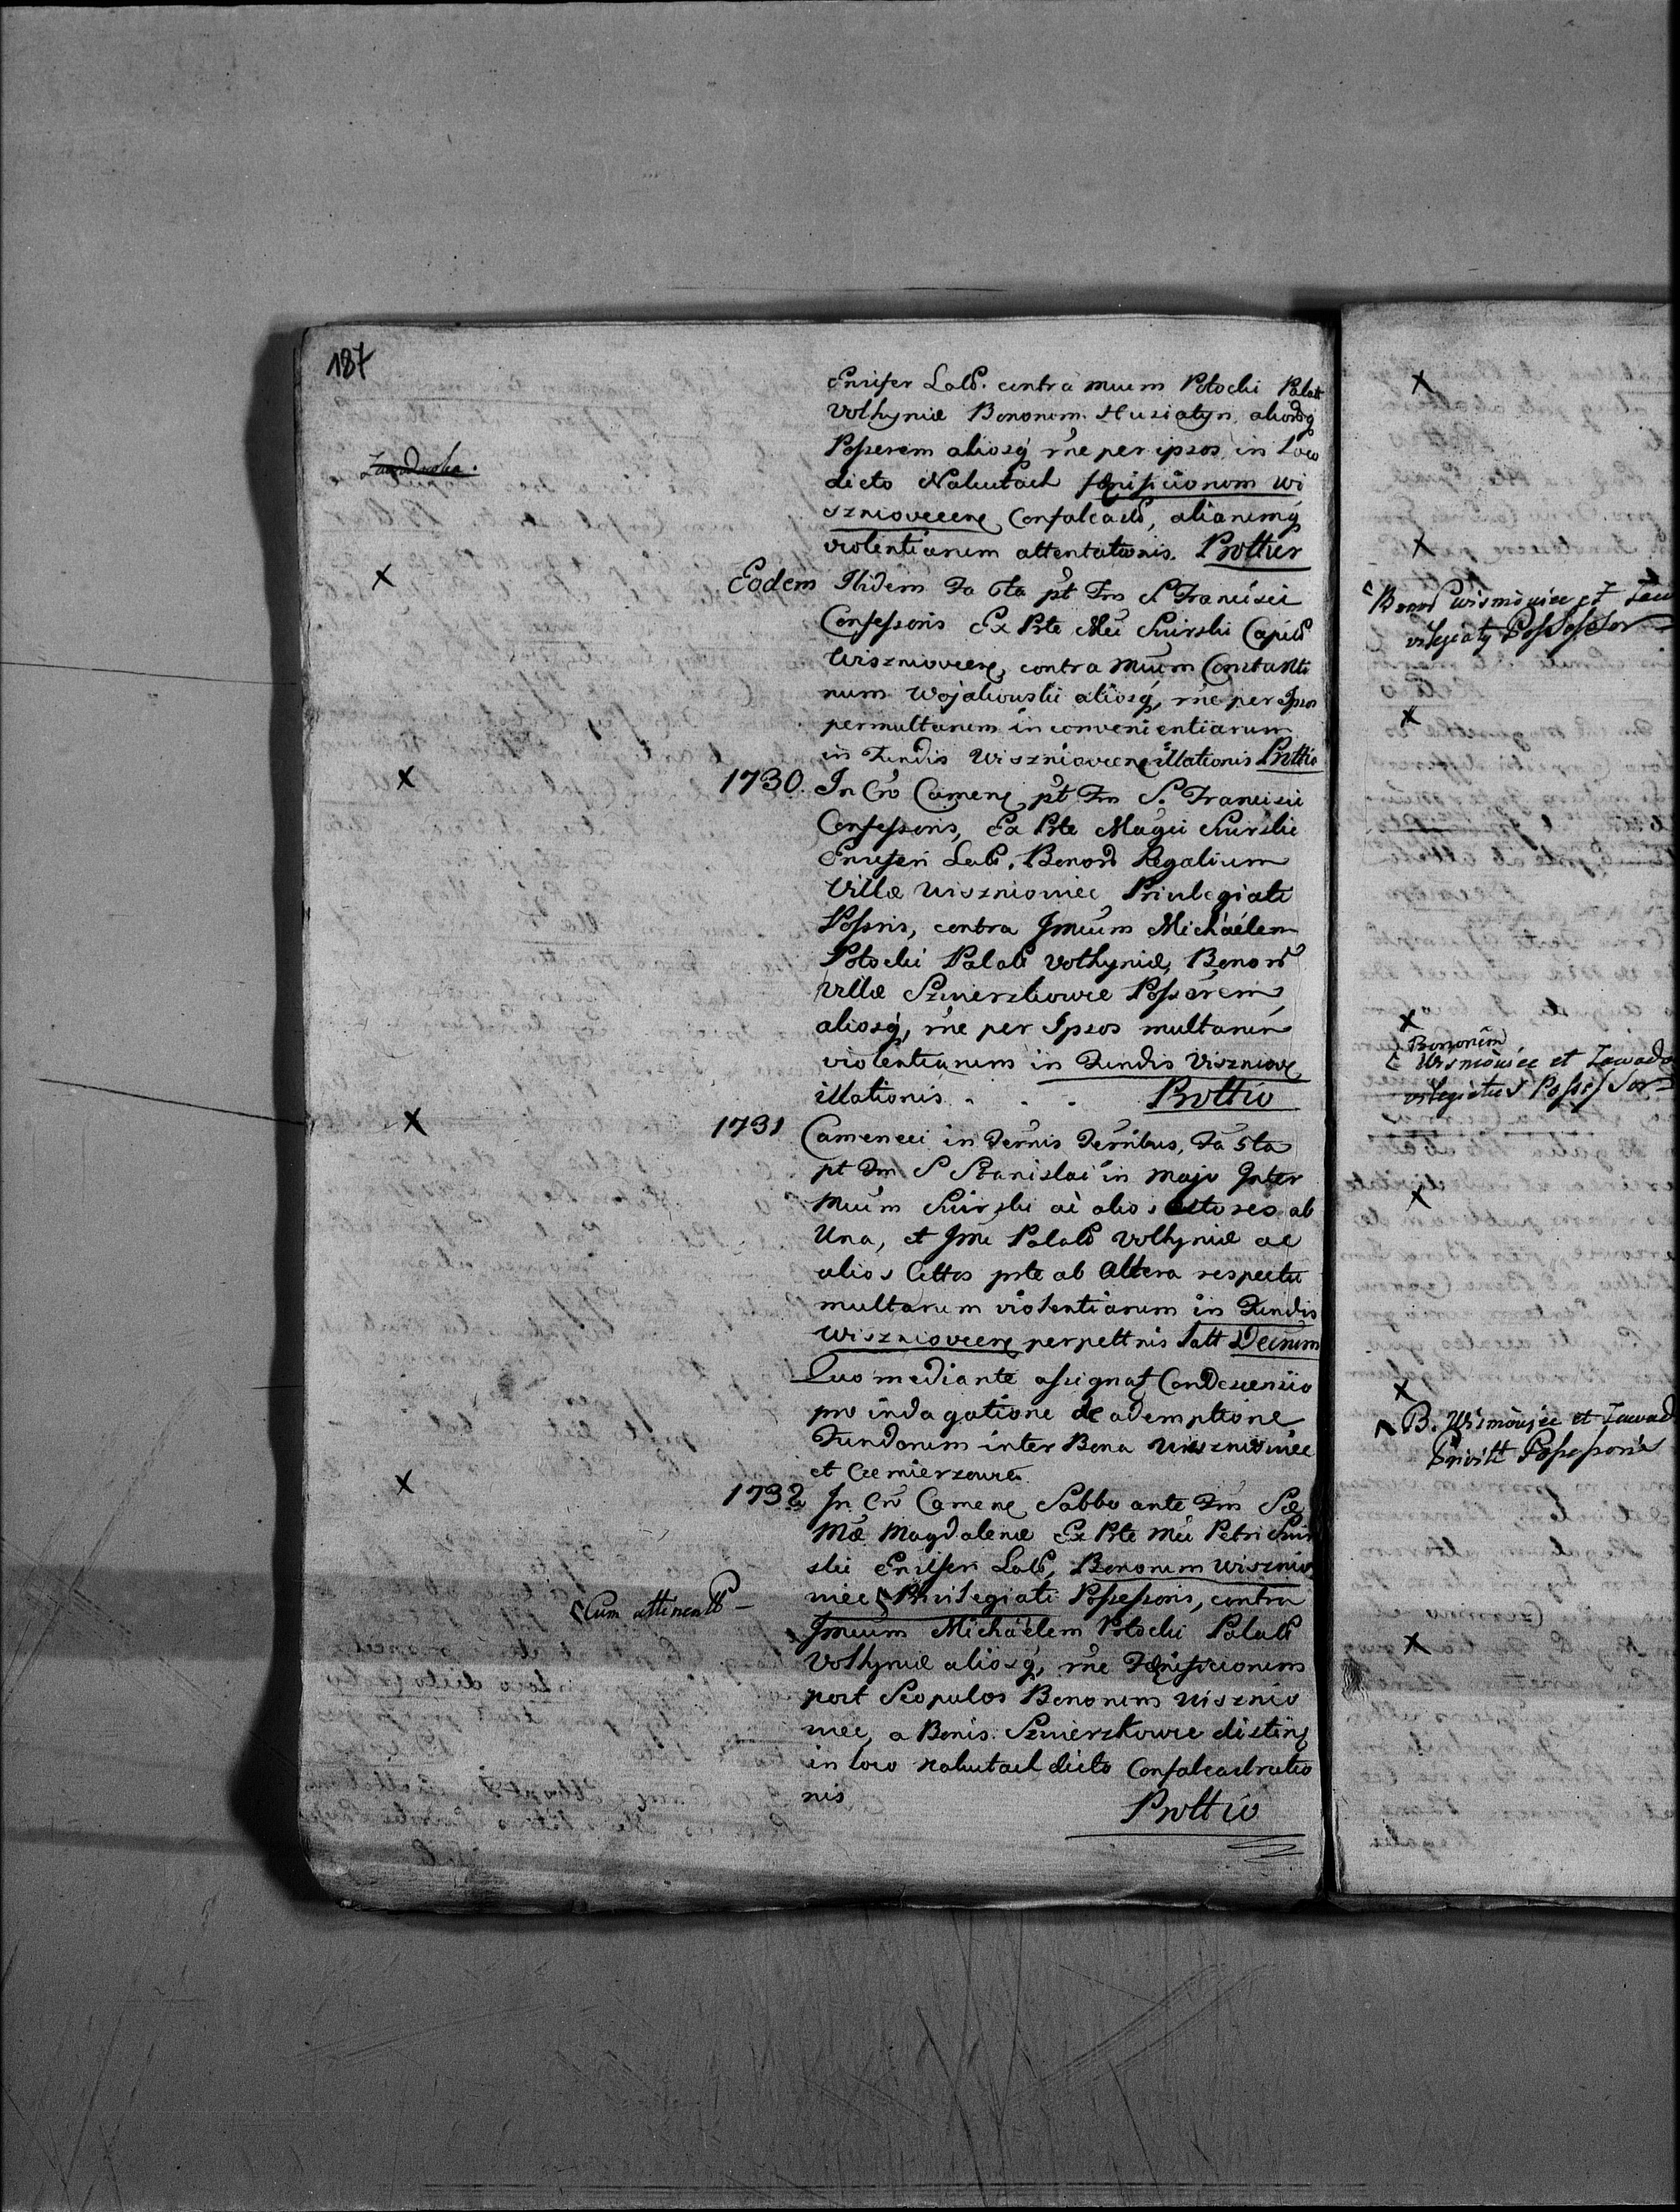 187
Ensifer Lab. contra Mucum Potocki Palatt
Volhyniæ Bonorum Husiatyn aliorq
Possrem aliosq rne per ipsos in Loco
dicto Nakutach fænisicionum Wi
szniovecens Confalcaō, aliarumq
violentiarum attentationis. Prottur
Eodem Ibidem Fa 6ta pt Fm S Francisci
Confessoris Ex Prte Mci Skirski Capit
Wiszniovecens, contra Mucum Constanti
num Wojakowski aliosq, rne per Ipsos
permultarum inconvenientiarum
in Fundis Wiszniovecens illationis Prottio
1730. In Cro Camenc pt Fm S. Francisci
Confessoris, Ex Prte Magci Skirskie
Ensiferi Lab. Bonor Regalium
Villæ Wiszniowiec Privilegiati
Possris, contra Jmcum Michaëlem
Potocki Palatt Volhyniæ, Bonor
Villæ Szmierzkowce Possorem
aliosq, rne per Ipsos multarum
violentiarum in Fundis Viszniove
illationis . . . Prottio
1731 Cameneci in Termis Terribus, Fa 5ta
pt Fm S Stanislai in Majo Inter
Mucum Skirski ac alios Actores ab
Una, et Jmc Palatt Volhyniæ ac
alios Cittos prte ab Altera respectu
multarum violentiarum in Fundis
Wiszniovecens perpettnis Latt Decrum
Quo mediante assignat Condescensio
pro indagatione de ademptione
Fundorum inter Bona Wiszniowiec
et Czemierzowce
1732 In Cro Camenc Sabbo ante Fm Sæ
Mæ Magdalenæ Ex Prte Mci Petri Skir
ski Ensiferi Lab, Bonorum Wisznio
wiec Privilegiati Possessoris, contra
Jmcum Michaëlem Potocki Palatt
Volhyniæ aliosq, rne Fænisicionum
post Scopulos Bonorum Wisznio
wiec, a Bonis Szmierzkowce disting
in loco Nakutach dicto Confalcastratio
nis
Prottio
Cum attinentt
Bonor Wisniowiec et Zaw
vilegiaty Possessor
Bonorum
Wisniowiec et Zawado
vilegiatus Possessor
B. Wisniowiec et Zawad
Privitt Possessoris